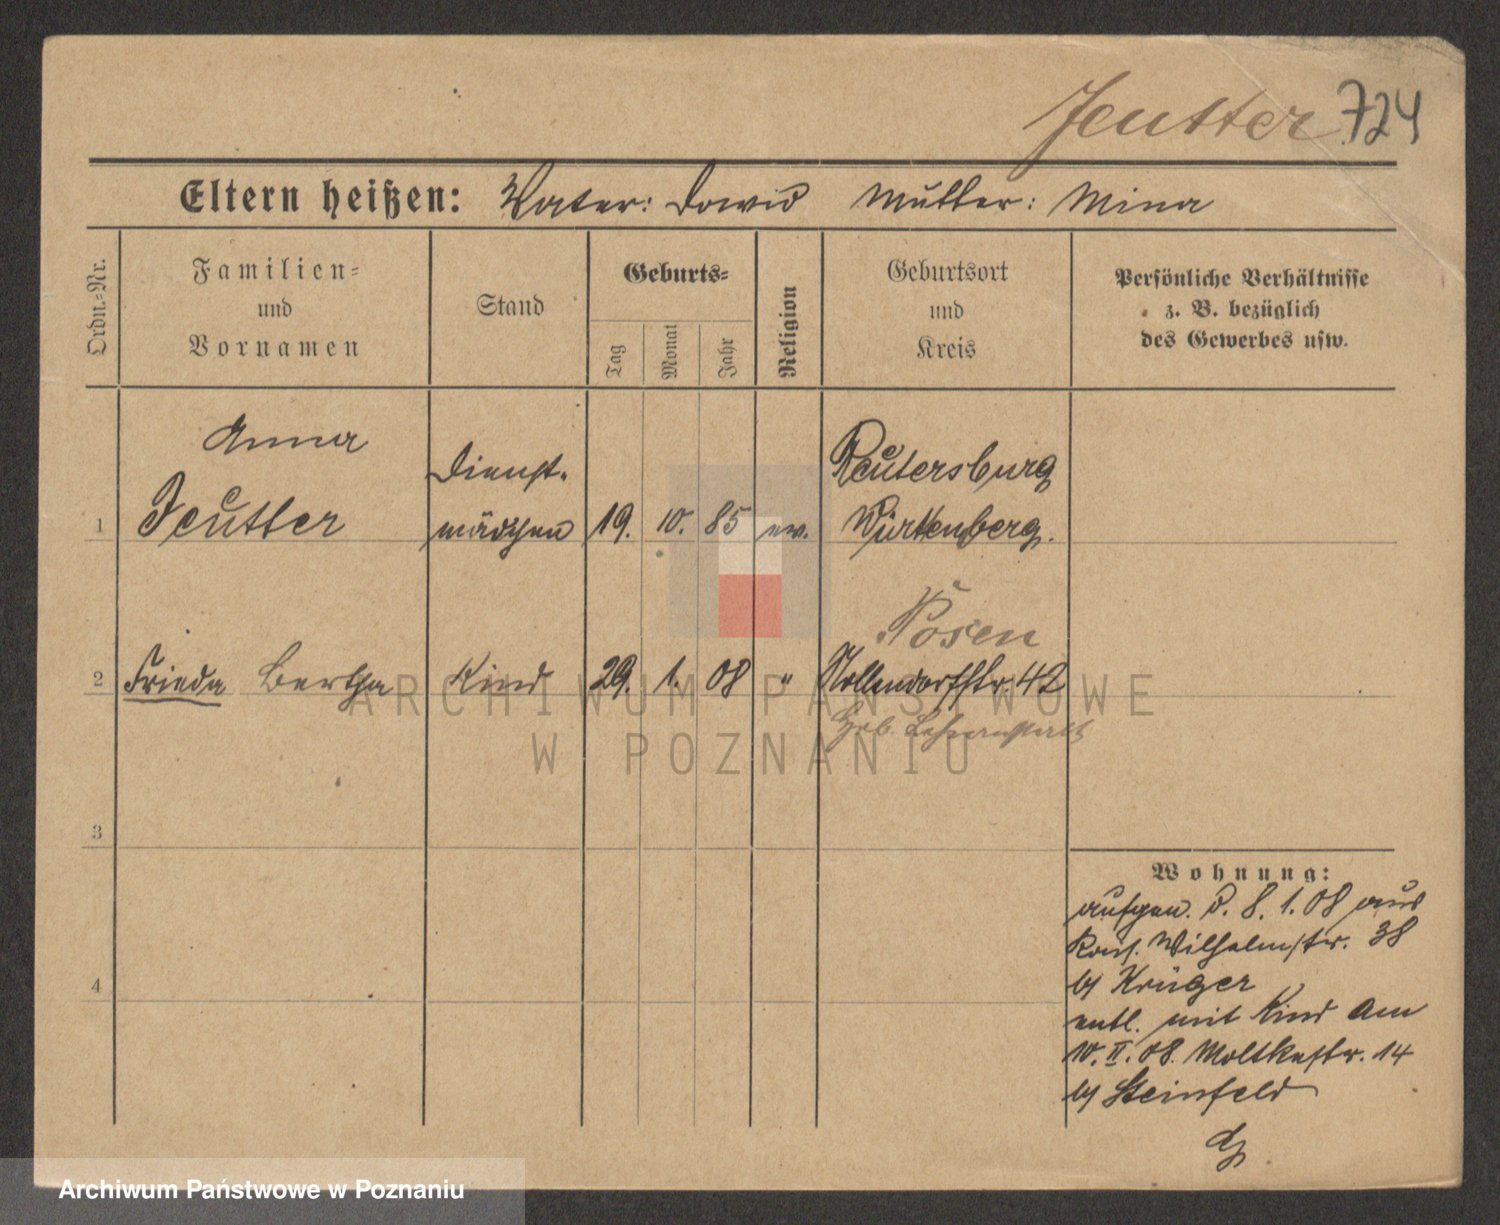 Jeutter 724
Eltern heißen: Vater: David Mutter: Mina
Ordn.=Nr.
Familien=
und
Vornamen
Stand
Geburts=
Tag
Monat
Jahr
Religion
Geburtsort
und
Kreis
Persönliche Verhältnisse
z. B. bezüglich
des Gewerbes usw.
Anna
Jeutter
Dienst-
mädchen
1
19. 10. 85 ev.
Reutersburg
Württenberg.
Posen
2 Frieda Bertha Kind 29. 1. 08 " Nollendorfstr. 42
Geb. Lehranstalt
3
4
Wohnung:
aufgen. d. 8. 1. 08 aus
Wilhelmstr. 38
b/ Krüger
entl. mit Kind am
10. II. 08. Moltkestr. 14
b/ Steinfeld
ARCHIWUM PAŃSTWOWE
W POZNANIU
Archiwum Państwowe w Poznaniu